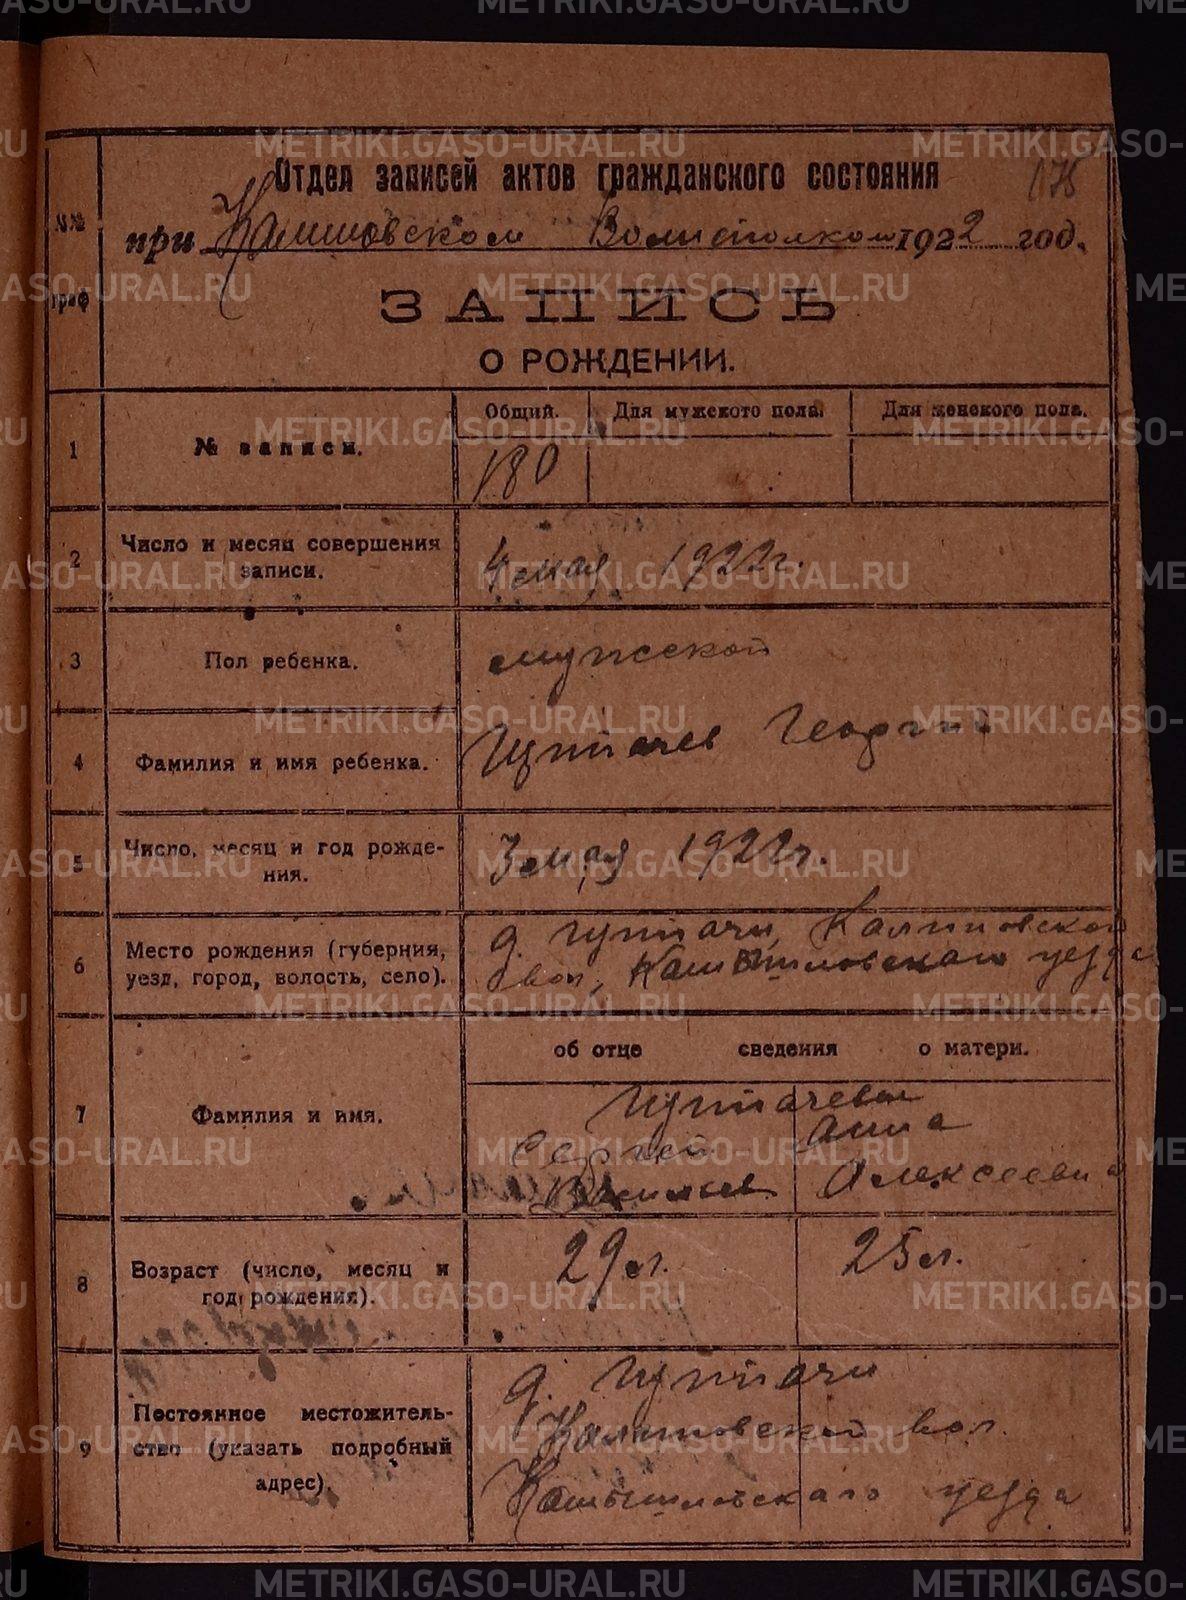 Отдел записей актов гражданского состояния
175
№№ граф
при Калиновском Волисполком 1922 год.
ЗАПИСЬ
О РОЖДЕНИИ.
Общий. Для мужского пола. Для женского пола.
1 № записи. 180
2 Число и месяц совершения
записи.
4 мая 1922 г.
3 Пол ребенка. мужской
4 Фамилия и имя ребенка. Чупачев Георгий
5 Число, месяц и год рожде-
ния.
3 мая 1922 г.
6 Место рождения (губерния,
уезд, город, волость, село).
д. Чупачи, Калиновской
вол., Камышловскаго уезда
об отце сведения о матери.
7 Фамилия и имя.
Чупачевы
Сергей Анна
Васильев Алексеевна
8 Возраст (число, месяц и
год рождения).
29 л. 25 л.
9 Постоянное местожитель-
ство (указать подробный
адрес).
д. Чупачи
Калиновской вол.
Камышловскаго уезда
METRIKI.GASO-URAL.RU